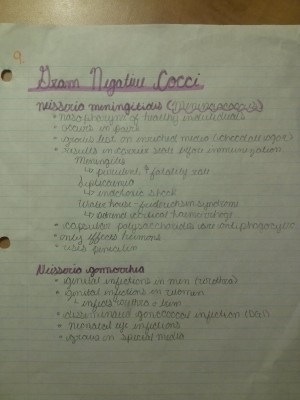 9.
Gram Negative Cocci
neisseria meningitidis (
• nasopharynx of healthy individuals
• occurs in pairs
• grows best on enriched media (chocolate agar)
• results in carrier state before immunization
Meningitis
↳ purulent & fatality rate
Septicaemia
↳ endotoxic shock
Waterhouse-friderichsen syndrome
↳ adrenal cortical haemorrhage
• capsular polysaccharides are antiphagocytic
• only effects humans
• uses penicillin
Neisseria gonnorrhea
• genital infections in men (urethra)
• genital infections in women
↳ infects
• disseminated gonococcal infection
• Neonatal eye infections
• Grows on special media